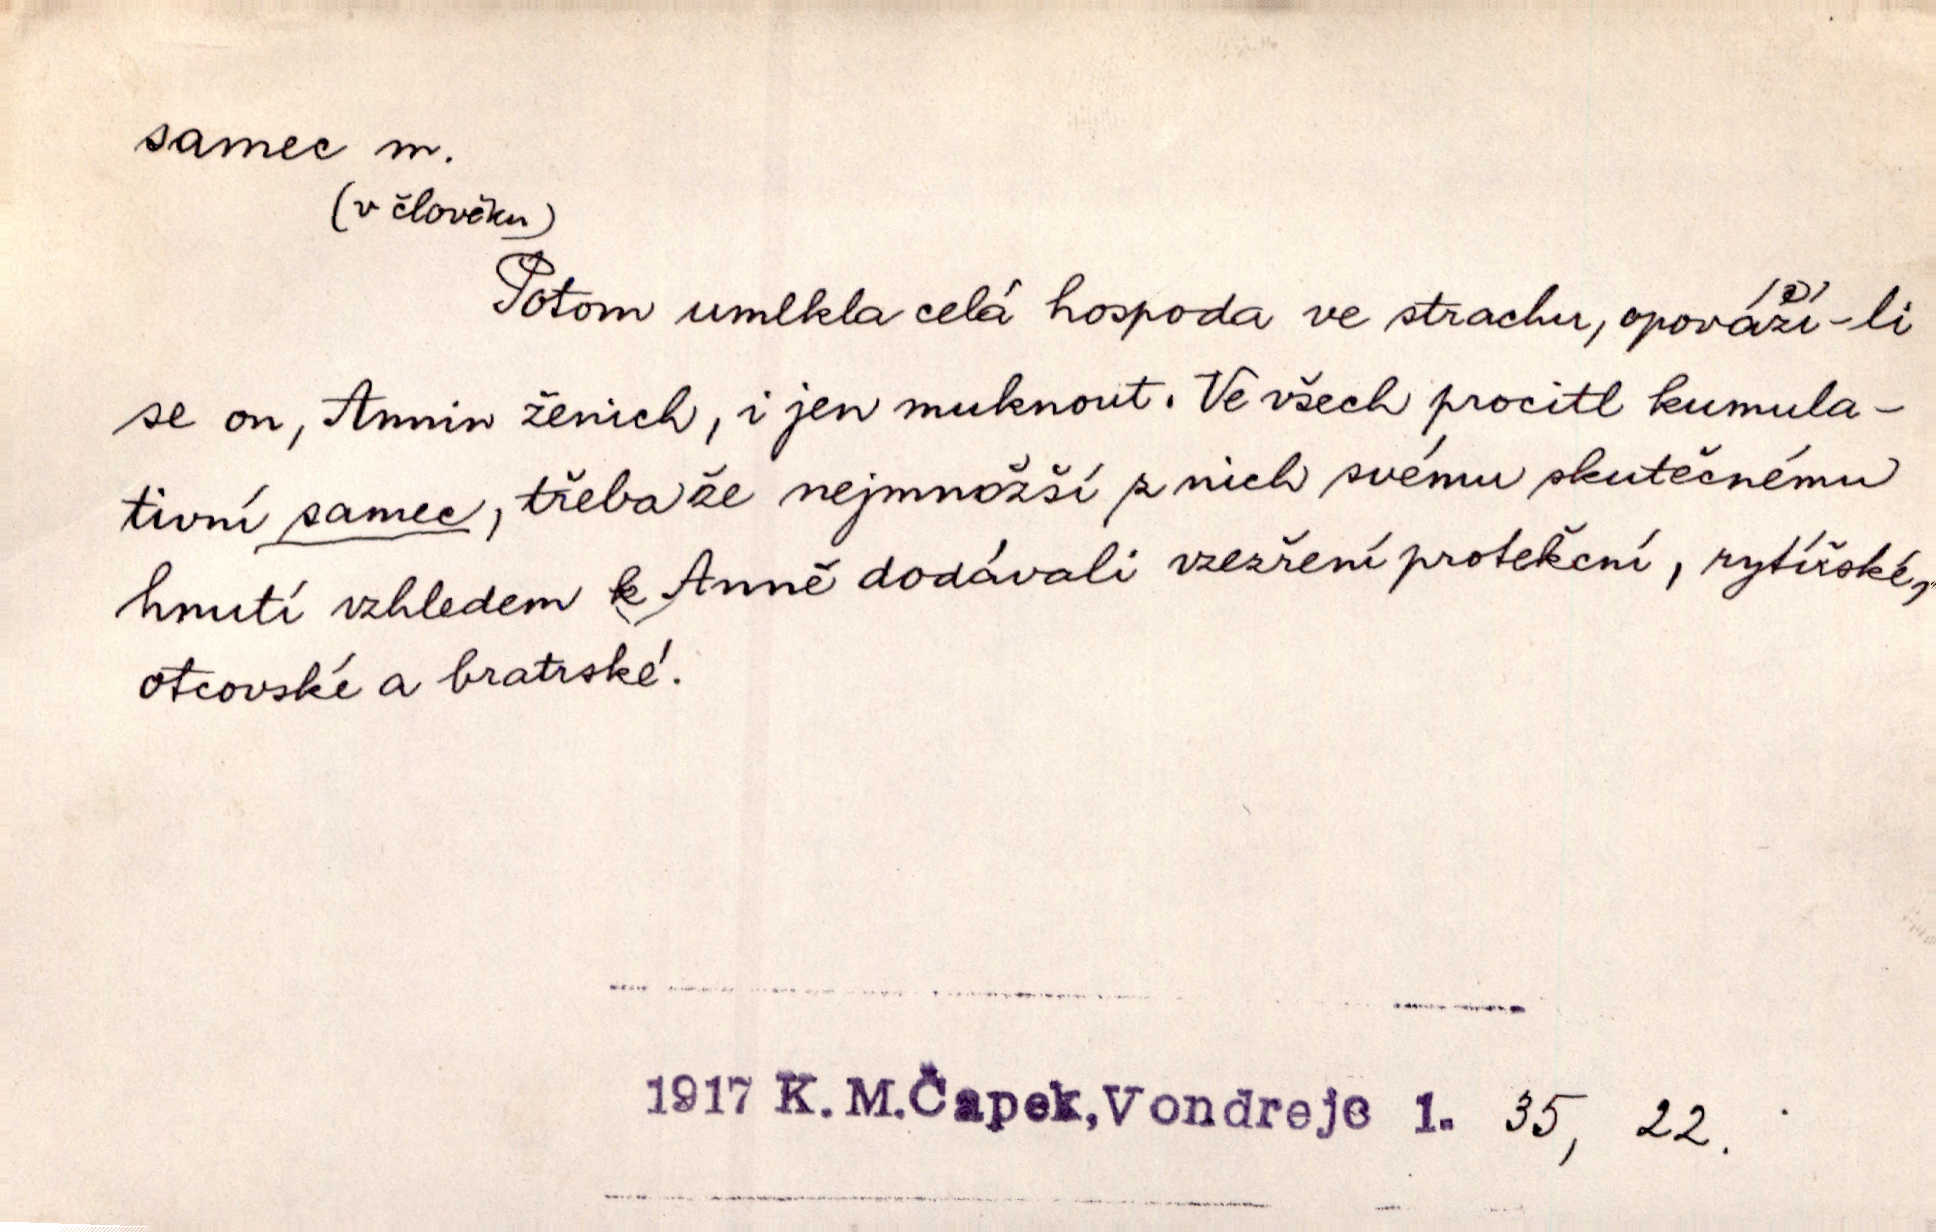 samec m.
(v člověku)
Potom umlkla celá hospoda ve strachu, opováží-li
se on, Annin ženich, i jen muknout. Ve všech procitl kumula-
tivní samec, třeba že nejmnožší z nich svému skutečnému
hnutí vzhledem k Anně dodávali vzezření protekční, rytířské,
otcovské a bratrské.
1917 K. M. Čapek, Vondrejc 1. 35, 22.